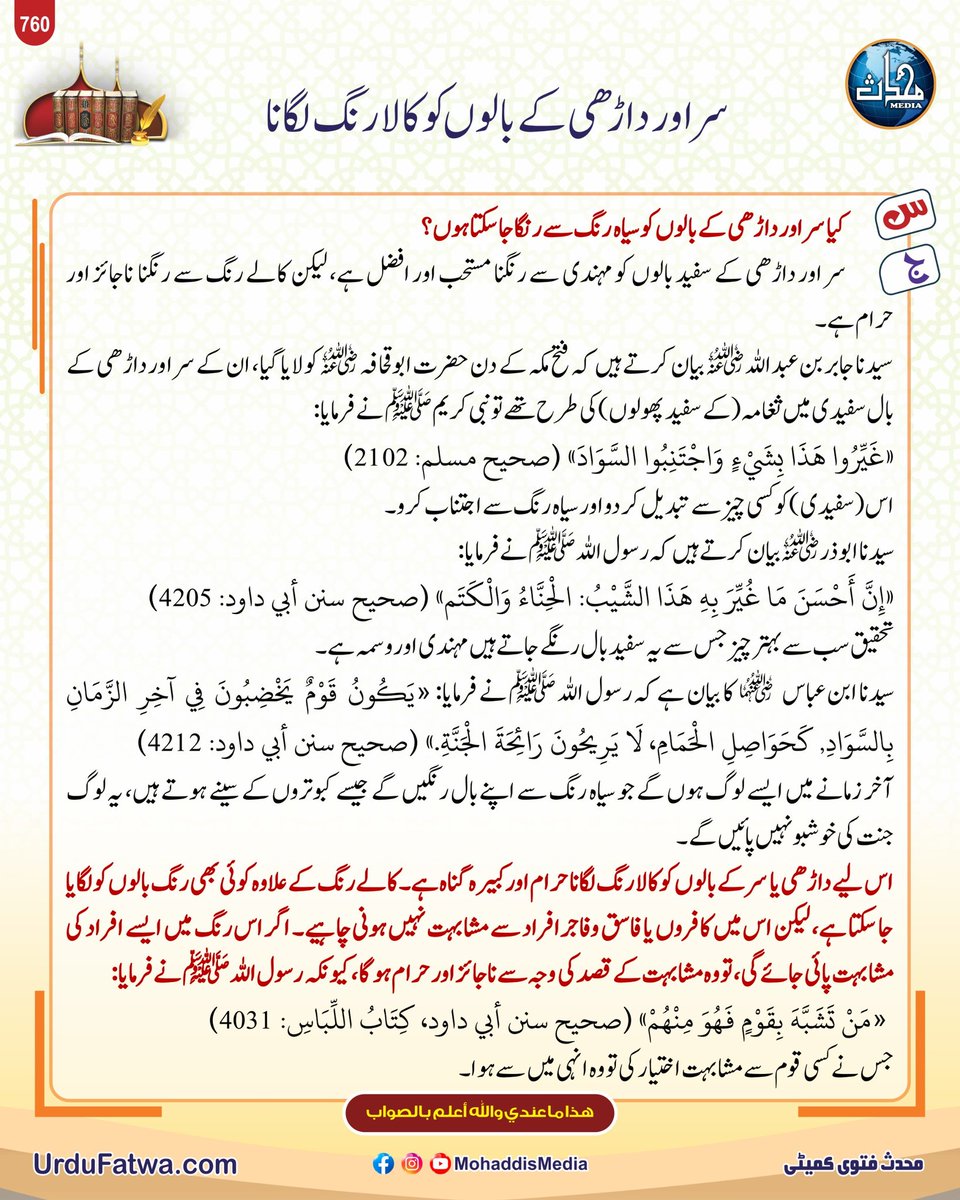 760
محدث
MEDIA
سر اور داڑھی کے بالوں کو کالا رنگ لگانا
س
کیا سر اور داڑھی کے بالوں کو سیاہ رنگ سے رنگا جا سکتا ہوں؟
ج
سر اور داڑھی کے سفید بالوں کو مہندی سے رنگنا مستحب اور افضل ہے، لیکن کالے رنگ سے رنگنا ناجائز اور
حرام ہے۔
سیدنا جابر بن عبد اللہ رضی اللہ عنہ بیان کرتے ہیں کہ فتح مکہ کے دن حضرت ابو قحافہ رضی اللہ عنہ کو لایا گیا، ان کے سر اور داڑھی کے
بال سفیدی میں ثغامہ (کے سفید پھولوں) کی طرح تھے تو نبی کریم ﷺ نے فرمایا:
«غَيِّرُوا هَذَا بِشَيْءٍ وَاجْتَنِبُوا السَّوَادَ» (صحيح مسلم: 2102)
اس (سفیدی) کو کسی چیز سے تبدیل کر دو اور سیاہ رنگ سے اجتناب کرو۔
سیدنا ابوذر رضی اللہ عنہ بیان کرتے ہیں کہ رسول اللہ ﷺ نے فرمایا:
«إِنَّ أَحْسَنَ مَا غُيِّرَ بِهِ هَذَا الشَّيْبُ: الْحِنَّاءُ وَالْكَتَم» (صحيح سنن أبي داود: 4205)
تحقیق سب سے بہتر چیز جس سے یہ سفید بال رنگے جاتے ہیں مہندی اور وسمہ ہے۔
سیدنا ابن عباس رضی اللہ عنہما کا بیان ہے کہ رسول اللہ ﷺ نے فرمایا: «يَكُونُ قَوْمٌ يَخْضِبُونَ فِي آخِرِ الزَّمَانِ
بِالسَّوَادِ, كَحَوَاصِلِ الْحَمَامِ، لَا يَرِيحُونَ رَائِحَةَ الْجَنَّةِ.» (صحيح سنن أبي داود: 4212)
آخر زمانے میں ایسے لوگ ہوں گے جو سیاہ رنگ سے اپنے بال رنگیں گے جیسے کبوتروں کے سینے ہوتے ہیں، یہ لوگ
جنت کی خوشبو نہیں پائیں گے۔
اس لیے داڑھی یا سر کے بالوں کو کالا رنگ لگانا حرام اور کبیرہ گناہ ہے۔ کالے رنگ کے علاوہ کوئی بھی رنگ بالوں کو لگایا
جا سکتا ہے، لیکن اس میں کافروں یا فاسق و فاجر افراد سے مشابہت نہیں ہونی چاہیے۔ اگر اس رنگ میں ایسے افراد کی
مشابہت پائی جائے گی، تو وہ مشابہت کے قصد کی وجہ سے ناجائز اور حرام ہو گا، کیونکہ رسول اللہ ﷺ نے فرمایا:
«مَنْ تَشَبَّهَ بِقَوْمٍ فَهُوَ مِنْهُمْ» (صحيح سنن أبي داود، كِتَابُ اللِّبَاسِ: 4031)
جس نے کسی قوم سے مشابہت اختیار کی تو وہ انہی میں سے ہوا۔
هذا ما عندي والله أعلم بالصواب
UrduFatwa.com
MohaddisMedia
محدث فتویٰ کمیٹی